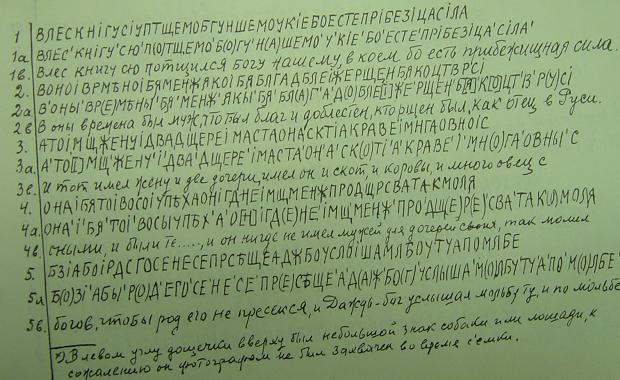 1 ВЛЕСКНІГУСІУПТЩЕМОБГУНШЕМОУКІЕБОЕСТЕПРІБЕЗІЦАСІЛА
1а ВЛЕС'КНІГУ'СЮ'П(О)ТЩЕМО'Б(О)ГУ'Н(А)ШЕМО'У'КІЕ'БО'ЕСТЕ'ПРІБЕЗІЦА'СІЛА'
1в. Влес книгу сю потщился Богу нашему, в коем бо есть прибежищная сила.
2. ВОНОІВРМѢНОІБЯМЕНЖЯКОІБЯБЛГАДБЛЕІЖЕРЩЕНБЯКОЦТВРСІ
2а В'ОНЫ'ВР(Е)МѢНЫ'БЯ'МЕНЖ'ЯКЫ'БЯ'БЛ(А)Г'А'Д(О)БЛЕ[І]ЖЕ'РЩЕН'Б[Я]К(О)ЦТ'В'Р(У)СІ
2в В оны времена был муж, что был благ и доблестен, кто рщен был, как отец в Руси.
3. АТОІМЩЖЕНУІДВАДЩЕРЕІМАСТАОНАСКТІАКРАВЕІМНГАОВНОІС
3а. А'ТО[І]МЩ'ЖЕНУ'І'ДВА'ДЩЕРЕ'ІМАСТА'ОН'А'СК(О)ТІ'А'КРАВЕ'І'МН(О)ГА'ОВНЫ'С
3в. И тот имел жену и две дочери, имел он и скот, и коровы, и много овец с
4. ОНАІБЯТОІВОСОІУПѢХАОНІГДНЕІМЩМЕНЖПРОДЩРСВАТАКМОЛЯ
4а. ОНА'І'БЯ'ТОІ'ВОСЫУПѢХ'А'О[Н]ІГД(Е)НЕ'ІМЩ'МЕНЖ'ПРО'ДЩ(Е)Р(Е)СВА'ТАК(О)МОЛЯ
4в. с ними, и были те....., и он нигде не имел мужей для дочерей своих, так молил
5. БЗІАБОІРДСГОСЕНЕСЕПРСѢЩЕАДЖБОУСЛОІШАМЛѢОУТУАПОМЛБЕ
5а Б(О)ЗІ'АБЫ'Р(О)Д'ЕГО'СЕ'НЕ'СЕ'ПР(Е)СѢЩЕ'А'Д(А)Ж'БО(Г)'УСЛЫША'М(О)ЛБУ'ТУ'А'ПО'М(О)ЛБЕ'
5б. богов, чтобы род его не пресекся, и Даждь-бог услышал мольбу ту, и по мольбе
*) В левом углу дощечки вверху был небольшой знак собаки или лошади, к
сожалению он фотографом не был захвачен во время съемки.